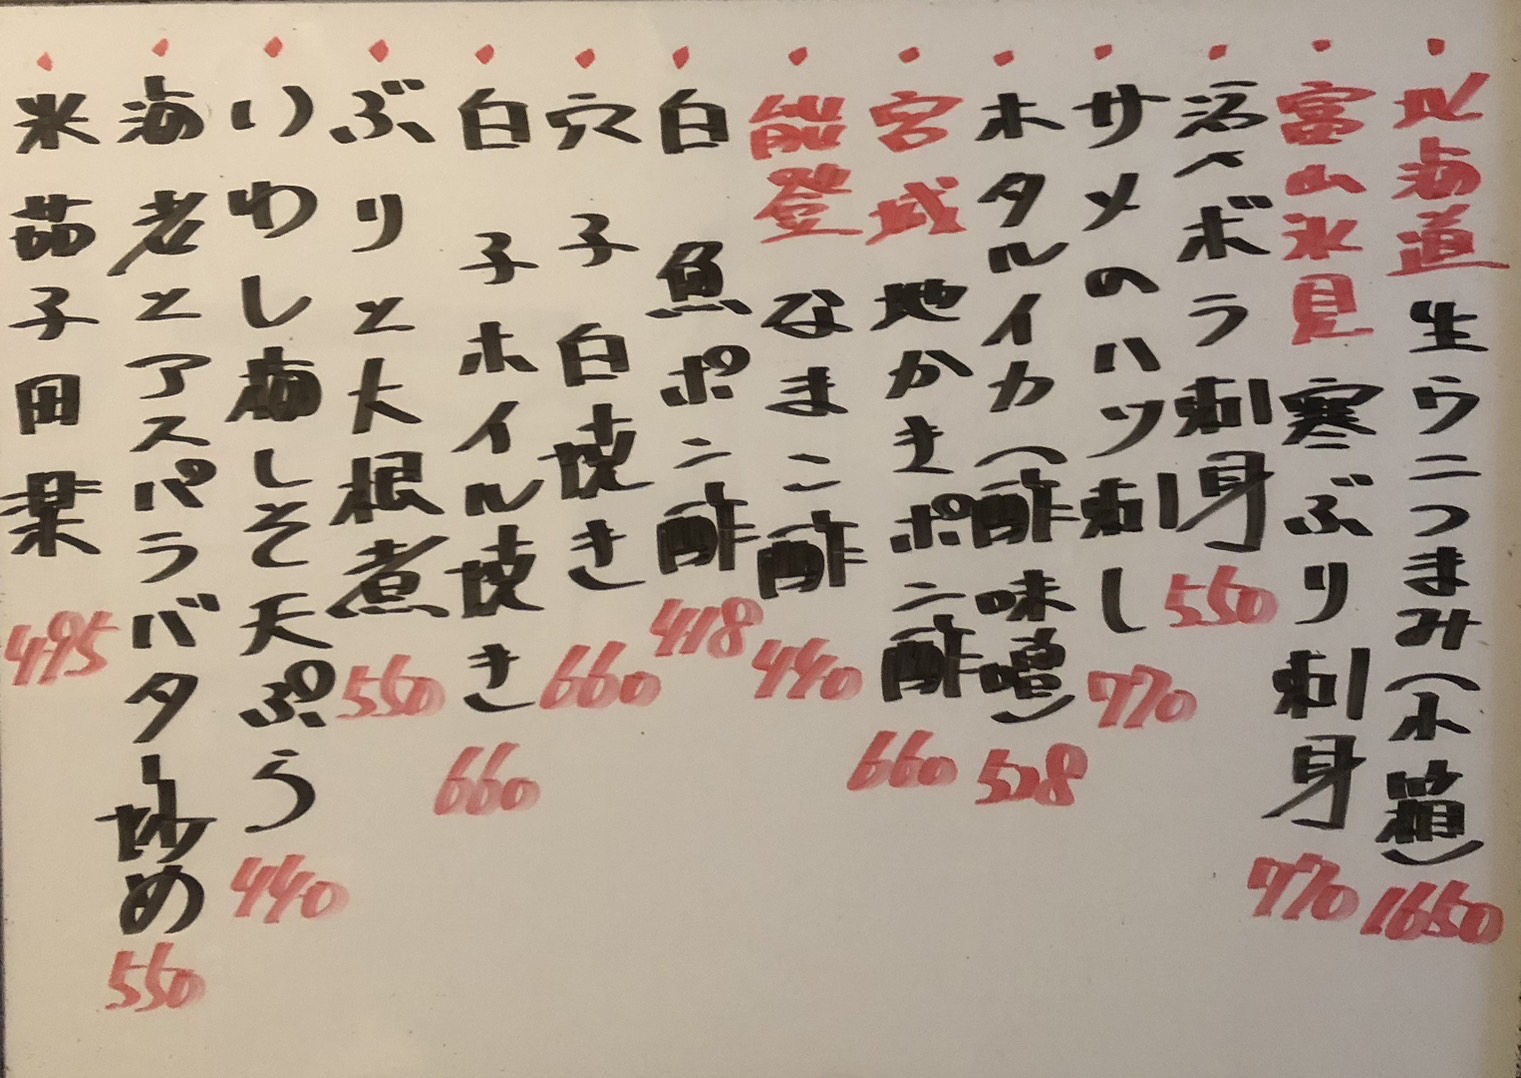 北海道 生ウニつまみ(小箱) 1650
富山氷見 寒ぶり刺身 770
活〆ボラ刺身 550
サメのハツ刺し 770
ホタルイカ(酢味噌) 528
宮城 地かきポン酢 660
能登 なまこ酢 440
白魚ポン酢 418
穴子白焼き 660
白子ホイル焼き 660
ぶりと大根煮 550
いわし梅しそ天ぷら 440
海老とアスパラバター炒め 550
米茄子田楽 495